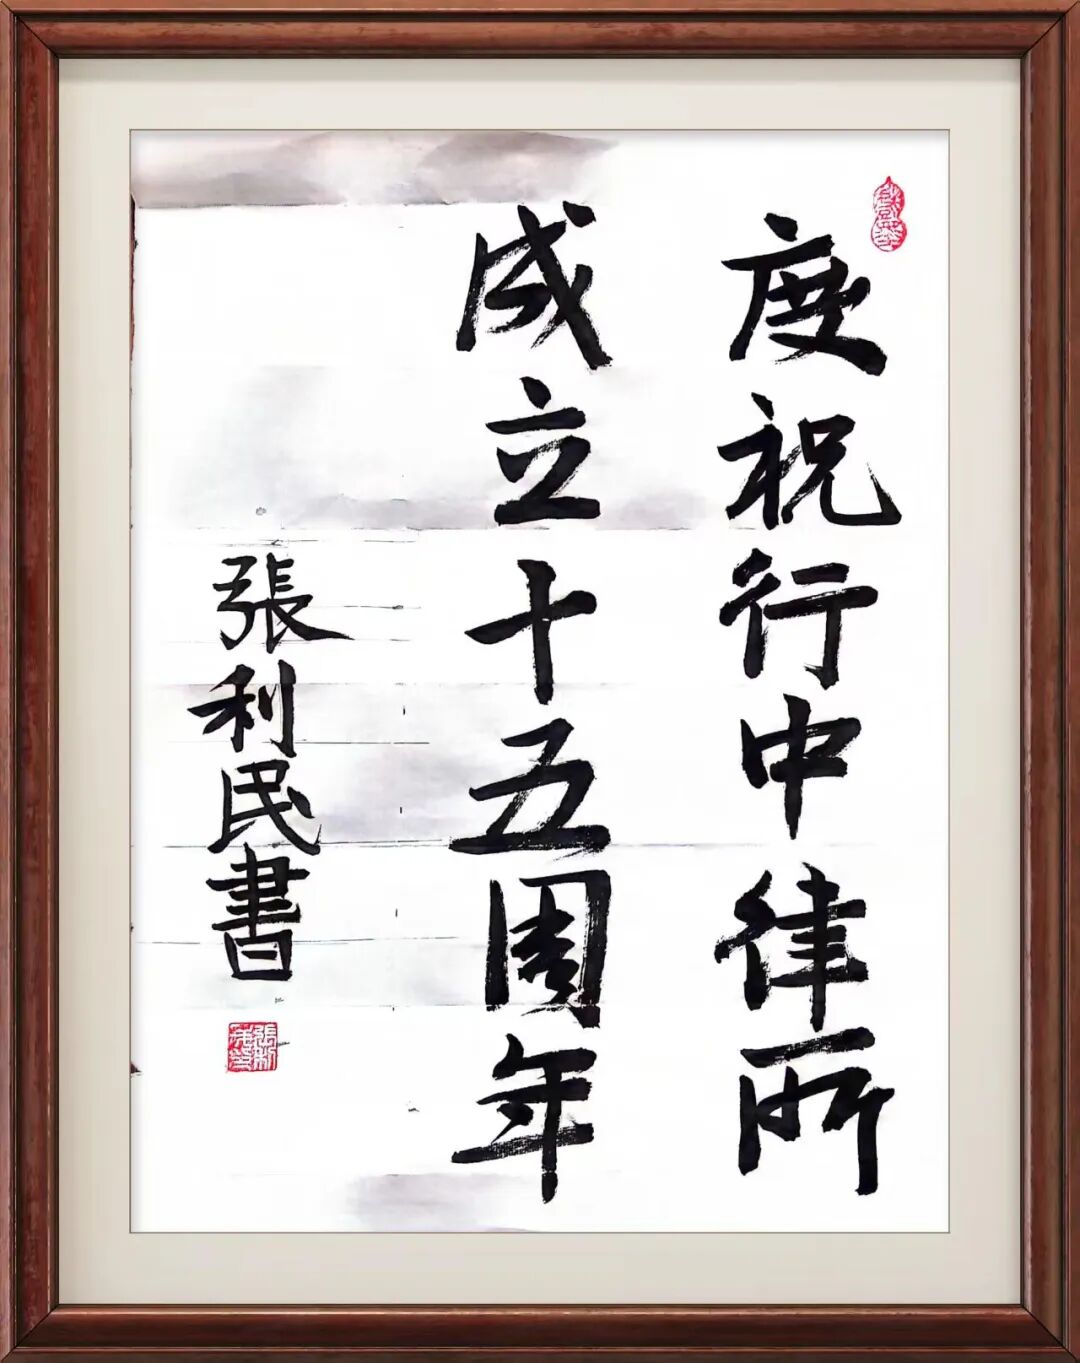 慶祝行中律所
成立十五周年
張利民書